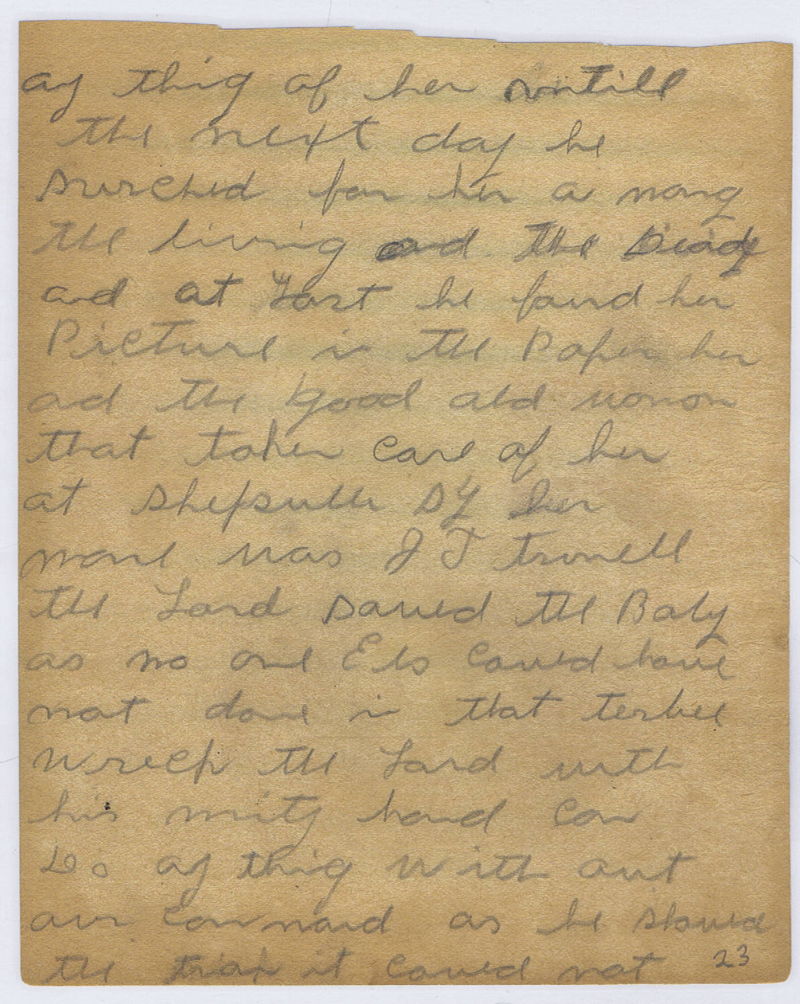 ay thig of her untill
the next day he
surched for her a mong
the living and the Deady
and at Last he faund her
Picture in the Paper her
ad the good old womon
that taken care of her
at Ky her
name was J T
the Lord saved the Baby
as no one Els Could have
not done in that terbee
wreck the Lord with
his mity hand Can
Do ay thig With out
our Command as he showed
the it Could not 23